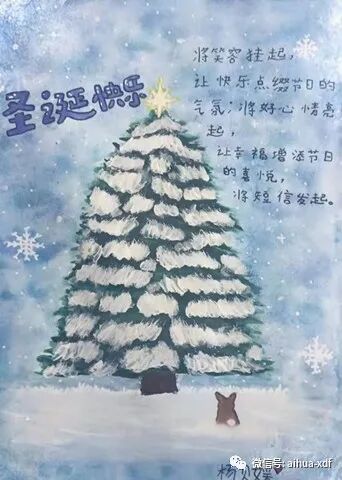 圣诞快乐
将笑容挂起，
让快乐点缀节日的
气氛；将好心情亮
起，
让幸福增添节日
的喜悦，
将短信发起。
微信号: aihua-xdf